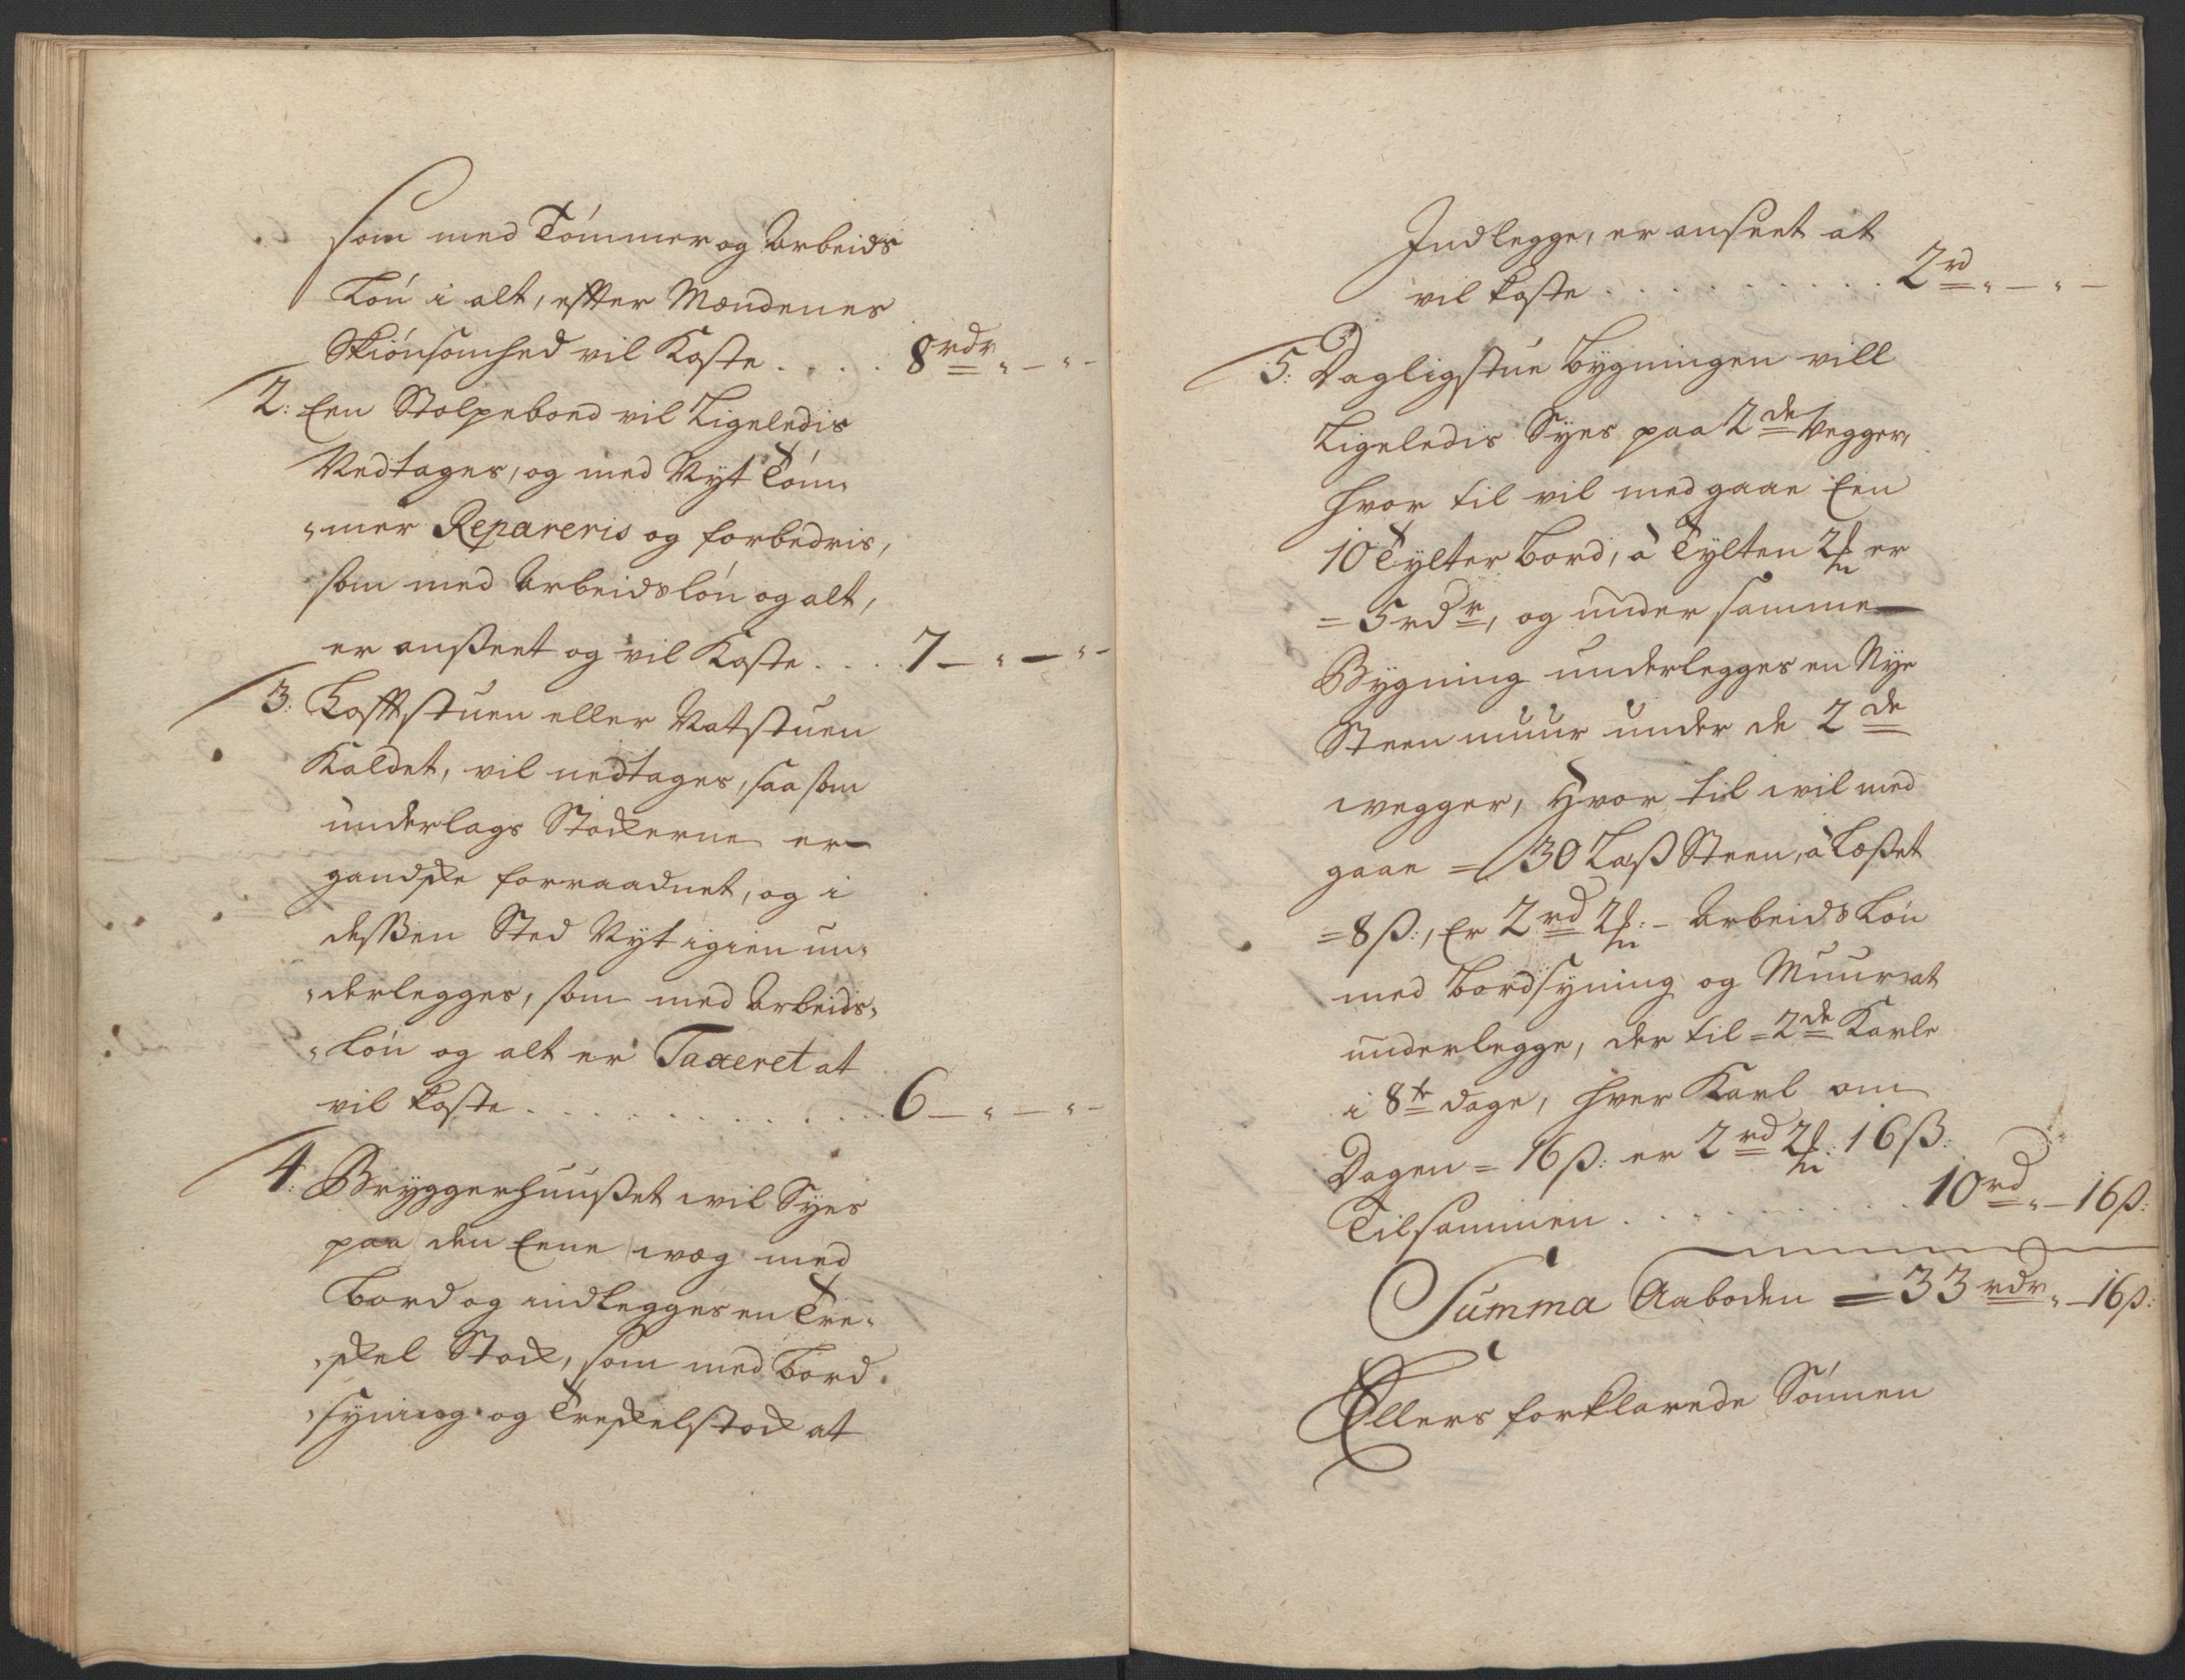 som med Tömmer og Arbeids
Lön i alt, effter Mændenes
Skiönsomhed vil Koste .... 8 rdr " — " —
2: Een Stolpeboed vil Ligeledis
Nedtages, og med Nyt Töm-
"mer Repareris og forbedris,
som med Arbeidslön og alt,
er anßeet og vil Koste .... 7 — " — " —
3: Lofftstuen eller Natstuen
Kaldet, vil nedtages, saasom
underlags Stockerne er
gandske forraadnet, og i
desßen Sted Nyt igien un-
"derlegges, som med Arbeids-
"Lön og alt er Taxeret at
vil koste ............ 6 — " — " —
4: Bryggerhuußet wil Syes
paa den Eene wæg med
Bord og indlegges en Tre-
"skel Stock, som med Bord-
"syning og Treskelstock at
Indlegge, er anseet at
vil koste ........... 2 rd " — " —
5: Dagligstue Bygningen vill
Ligeledis Syes paa 2de Vegger,
hvor til vil medgaae Een
10 Tylter Bord, à Tylten 2 ƒ er
= 5 rdr, og under samme
Bygning underlegges en Nye
Steen muur under de 2de
wegger, Hvor til wil med
gaae = 30 Laß Steen, à Laßet
= 8 ß:, Er 2 rd 2 ƒ: - Arbeids Lön
med Bordsyning og Muur at
underlegge, der til = 2de Karle
i 8te dage, hver Karl om
Dagen = 16 ß: er 2 rd 2 ƒ: 16 ß:
Tilsammen .......... 10 rd " — 16 ß:
Summa Aaboden = 33 rdr " — 16 ß:
Ellers forklarede Sönnen